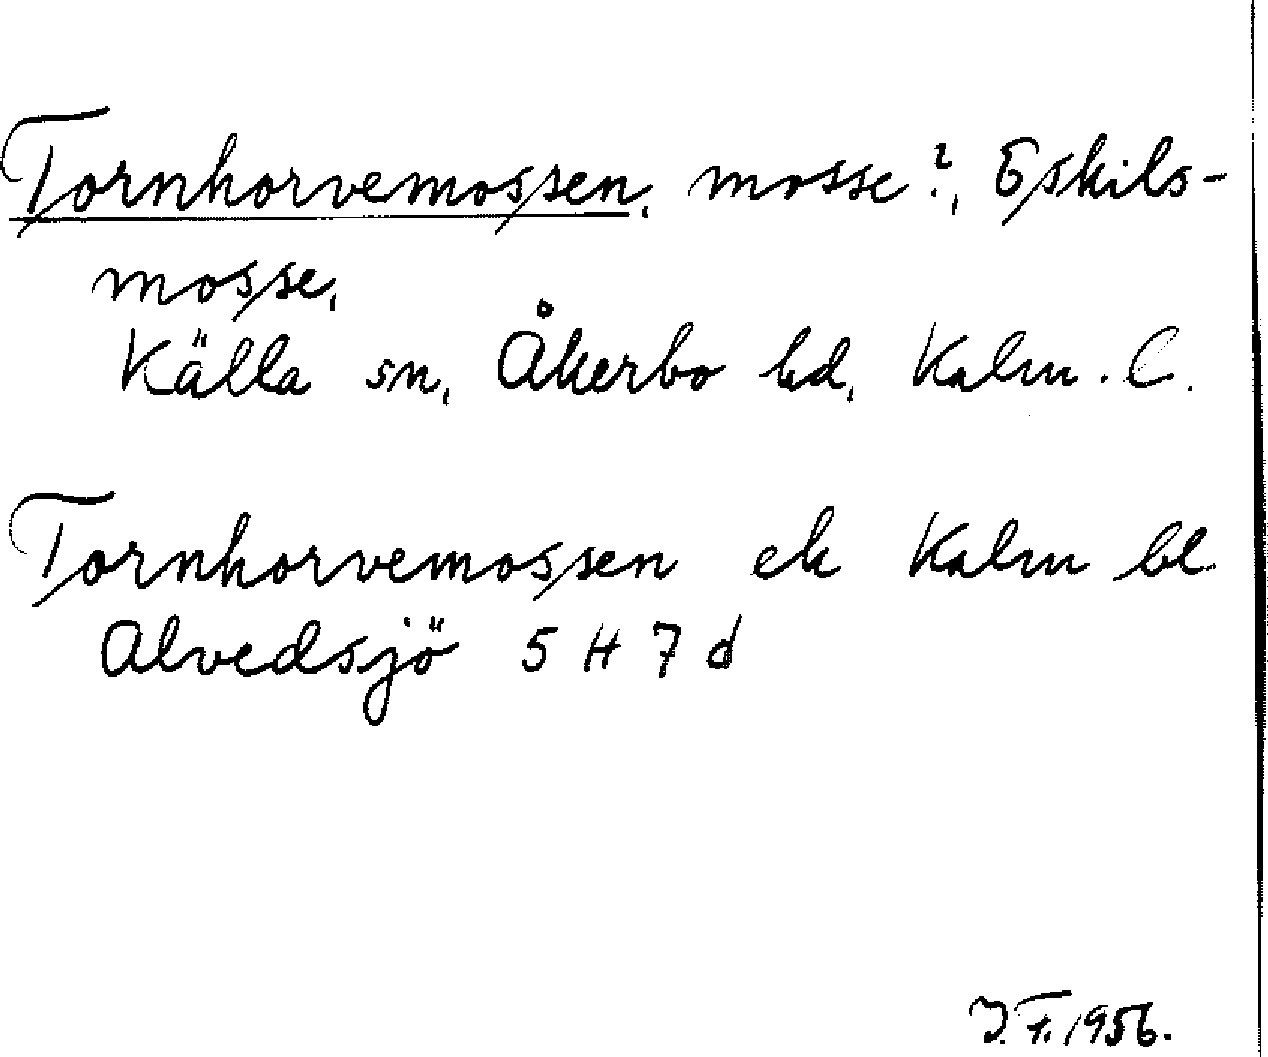 Tornhorvemossen, mosse?, Eskils-
mosse,
Källa sn, Åkerbo hd, Kalm. l.
Tornhorvemossen ek Kalm bl
Alvedsjö 5 H 7 d
J. F. 1956.